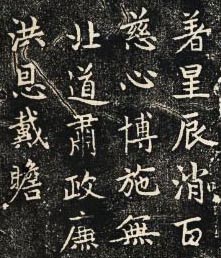 著星辰消百
慈心博施無
北道肅政廉
洪恩戴瞻